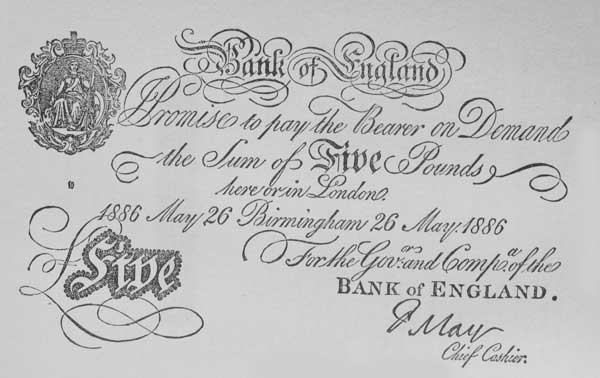 Bank of England
Promise to pay the Bearer on Demand
the Sum of Five Pounds
here or in London.
1886 May 26 Birmingham 26 May 1886
For the Govrs. and Compa. of the
BANK of ENGLAND.
Five
F May
Chief Cashier.